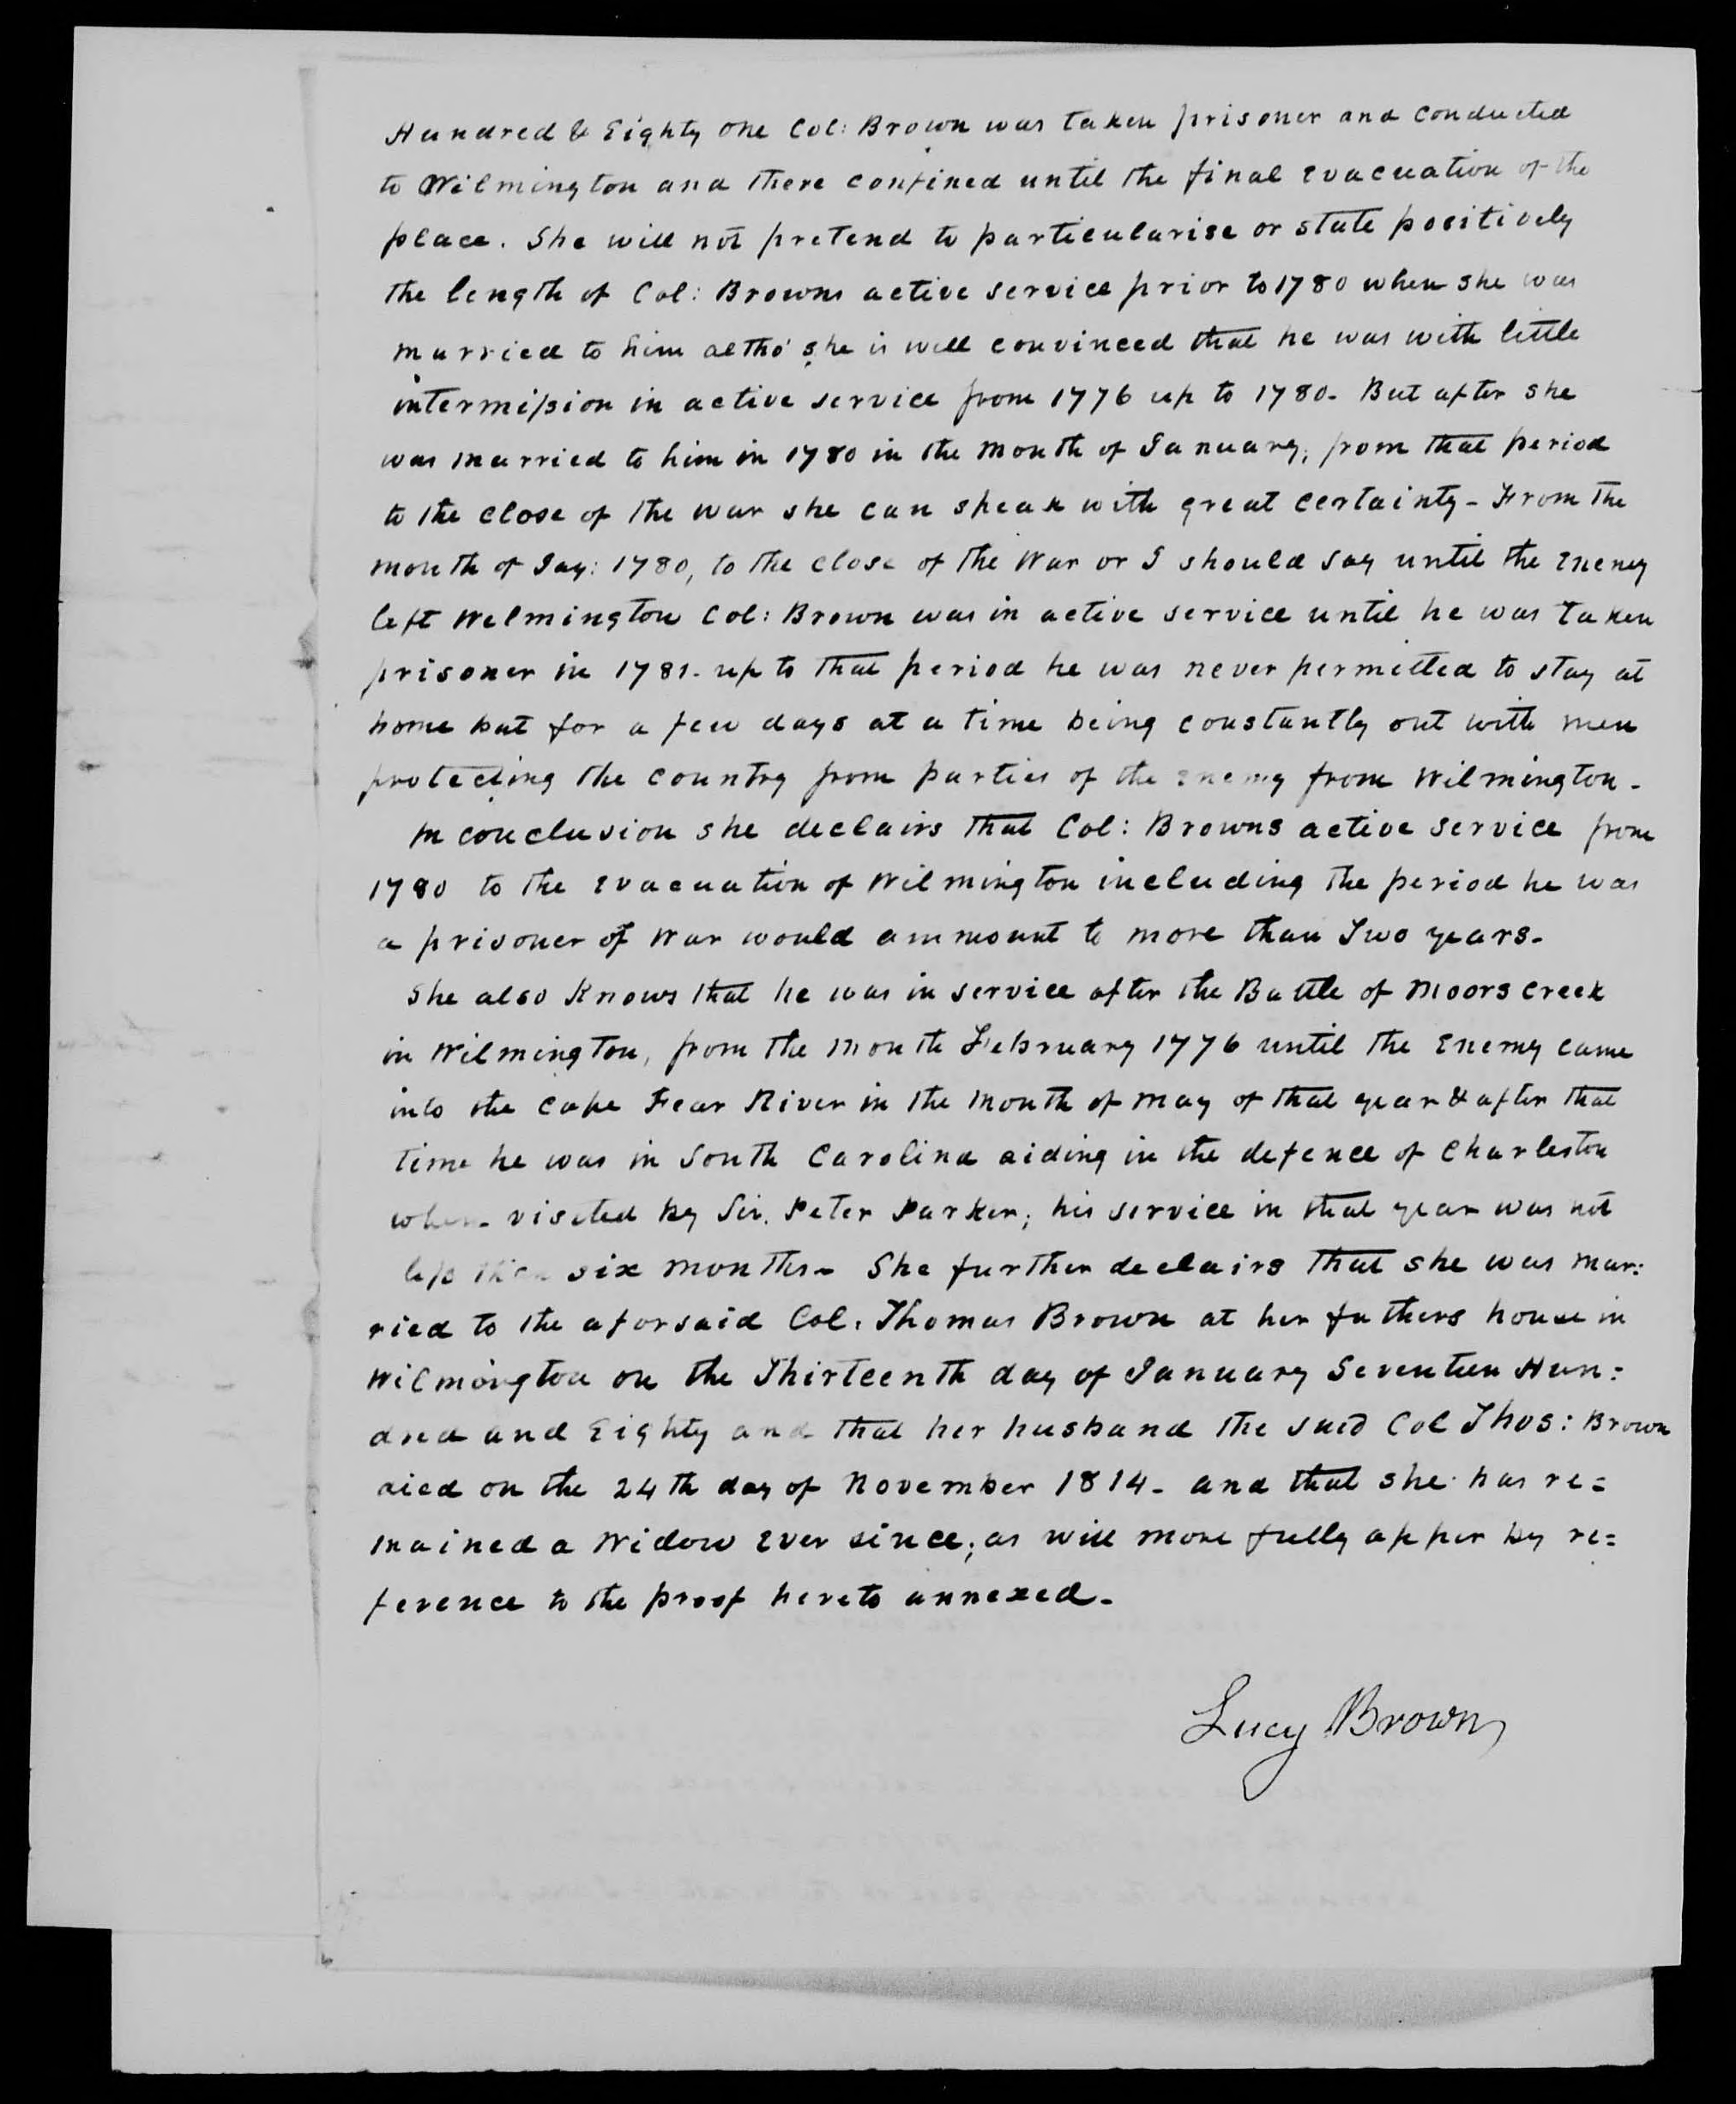 Hundred & Eighty one Col: Brown was taken prisoner and conducted
to Wilmington and there confined until the final evacuation of the
place. She will not pretend to particularise or state positively
the length of Col: Browns active service prior to 1780 when she was
married to him altho' she is well convinced that he was with little
intermission in active service from 1776 up to 1780. But after she
was married to him in 1780 in the month of January, from that period
to the close of the war she can speak with great certainty - From the
month of Jay: 1780, to the close of the War or I should say until the Enemy
left Welmington Col: Brown was in active service until he was taken
prisoner in 1781. up to that period he was never permitted to stay at
home but for a few days at a time being constantly out with men
protecting the country from parties of the enemy from Wilmington.
In conclusion she declairs that Col: Browns active service from
1780 to the evacuation of Wilmington including the period he was
a prisoner of War would ammount to more than Two years.
She also Knows that he was in service after the Battle of Moors creek
in Wilmington, from the month February 1776 until the Enemy came
into the Cape Fear River in the month of may of that year & after that
time he was in South Carolina aiding in the defence of Charleston
when visited by Sir. Peter Parker; his service in that year was not
less than six months. She further declairs that she was mar:
ried to the aforsaid Col. Thomas Brown at her fathers house in
Wilmington on the Thirteenth day of January Seventeen Hun:
dred and Eighty and that her husband the said Col Thos: Brown
died on the 24th day of November 1814. and that she has re=
mained a Widow ever since; as will more fully apper by re=
ference to the proof hereto annexed.
Lucy Brown